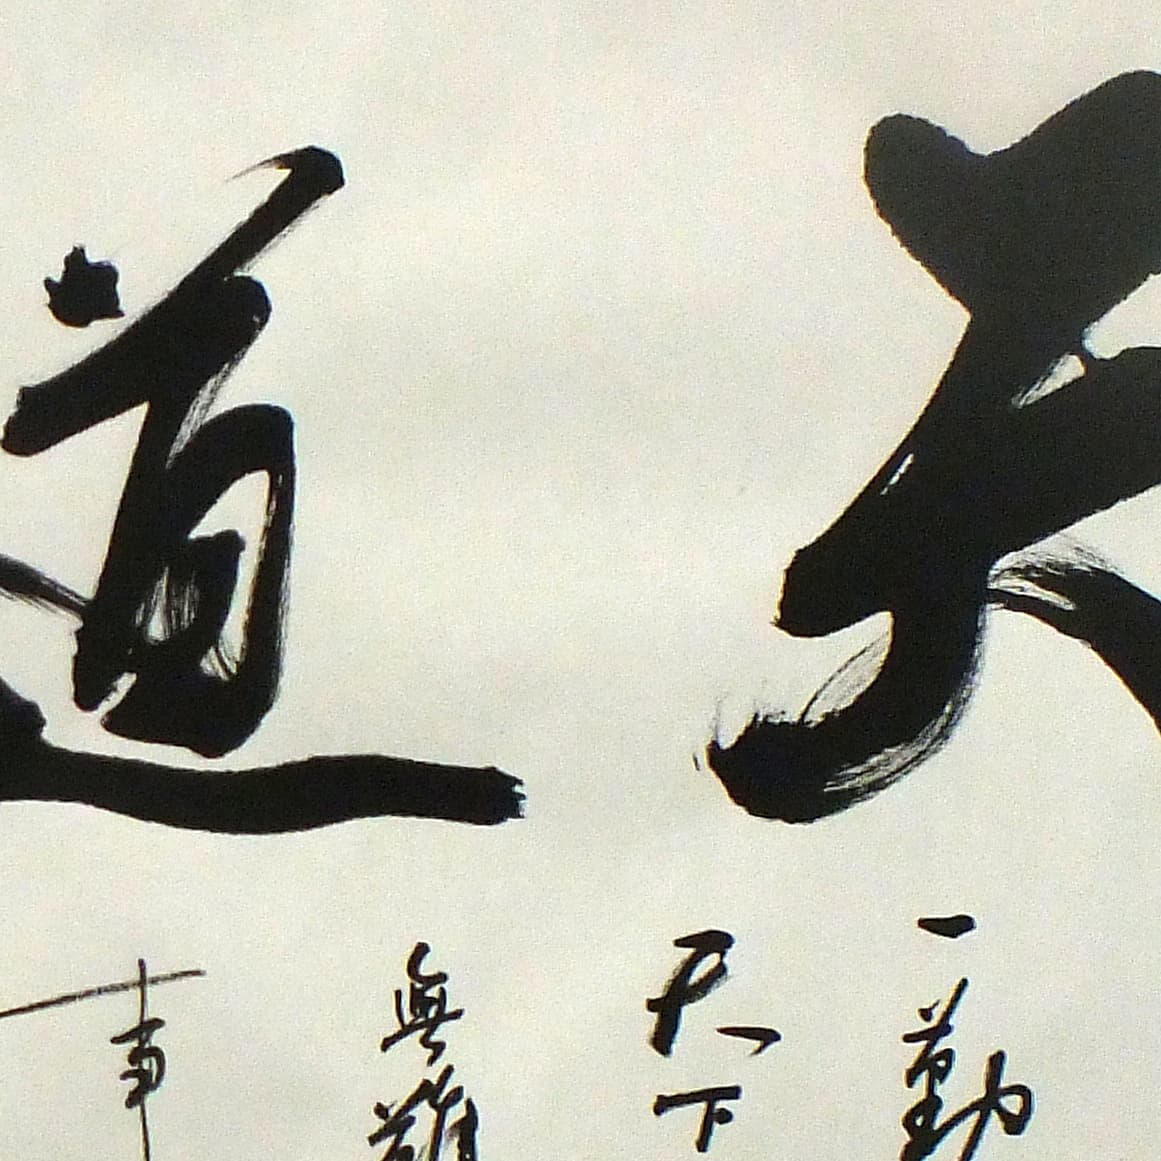 天道
一勤
天下
無難
事